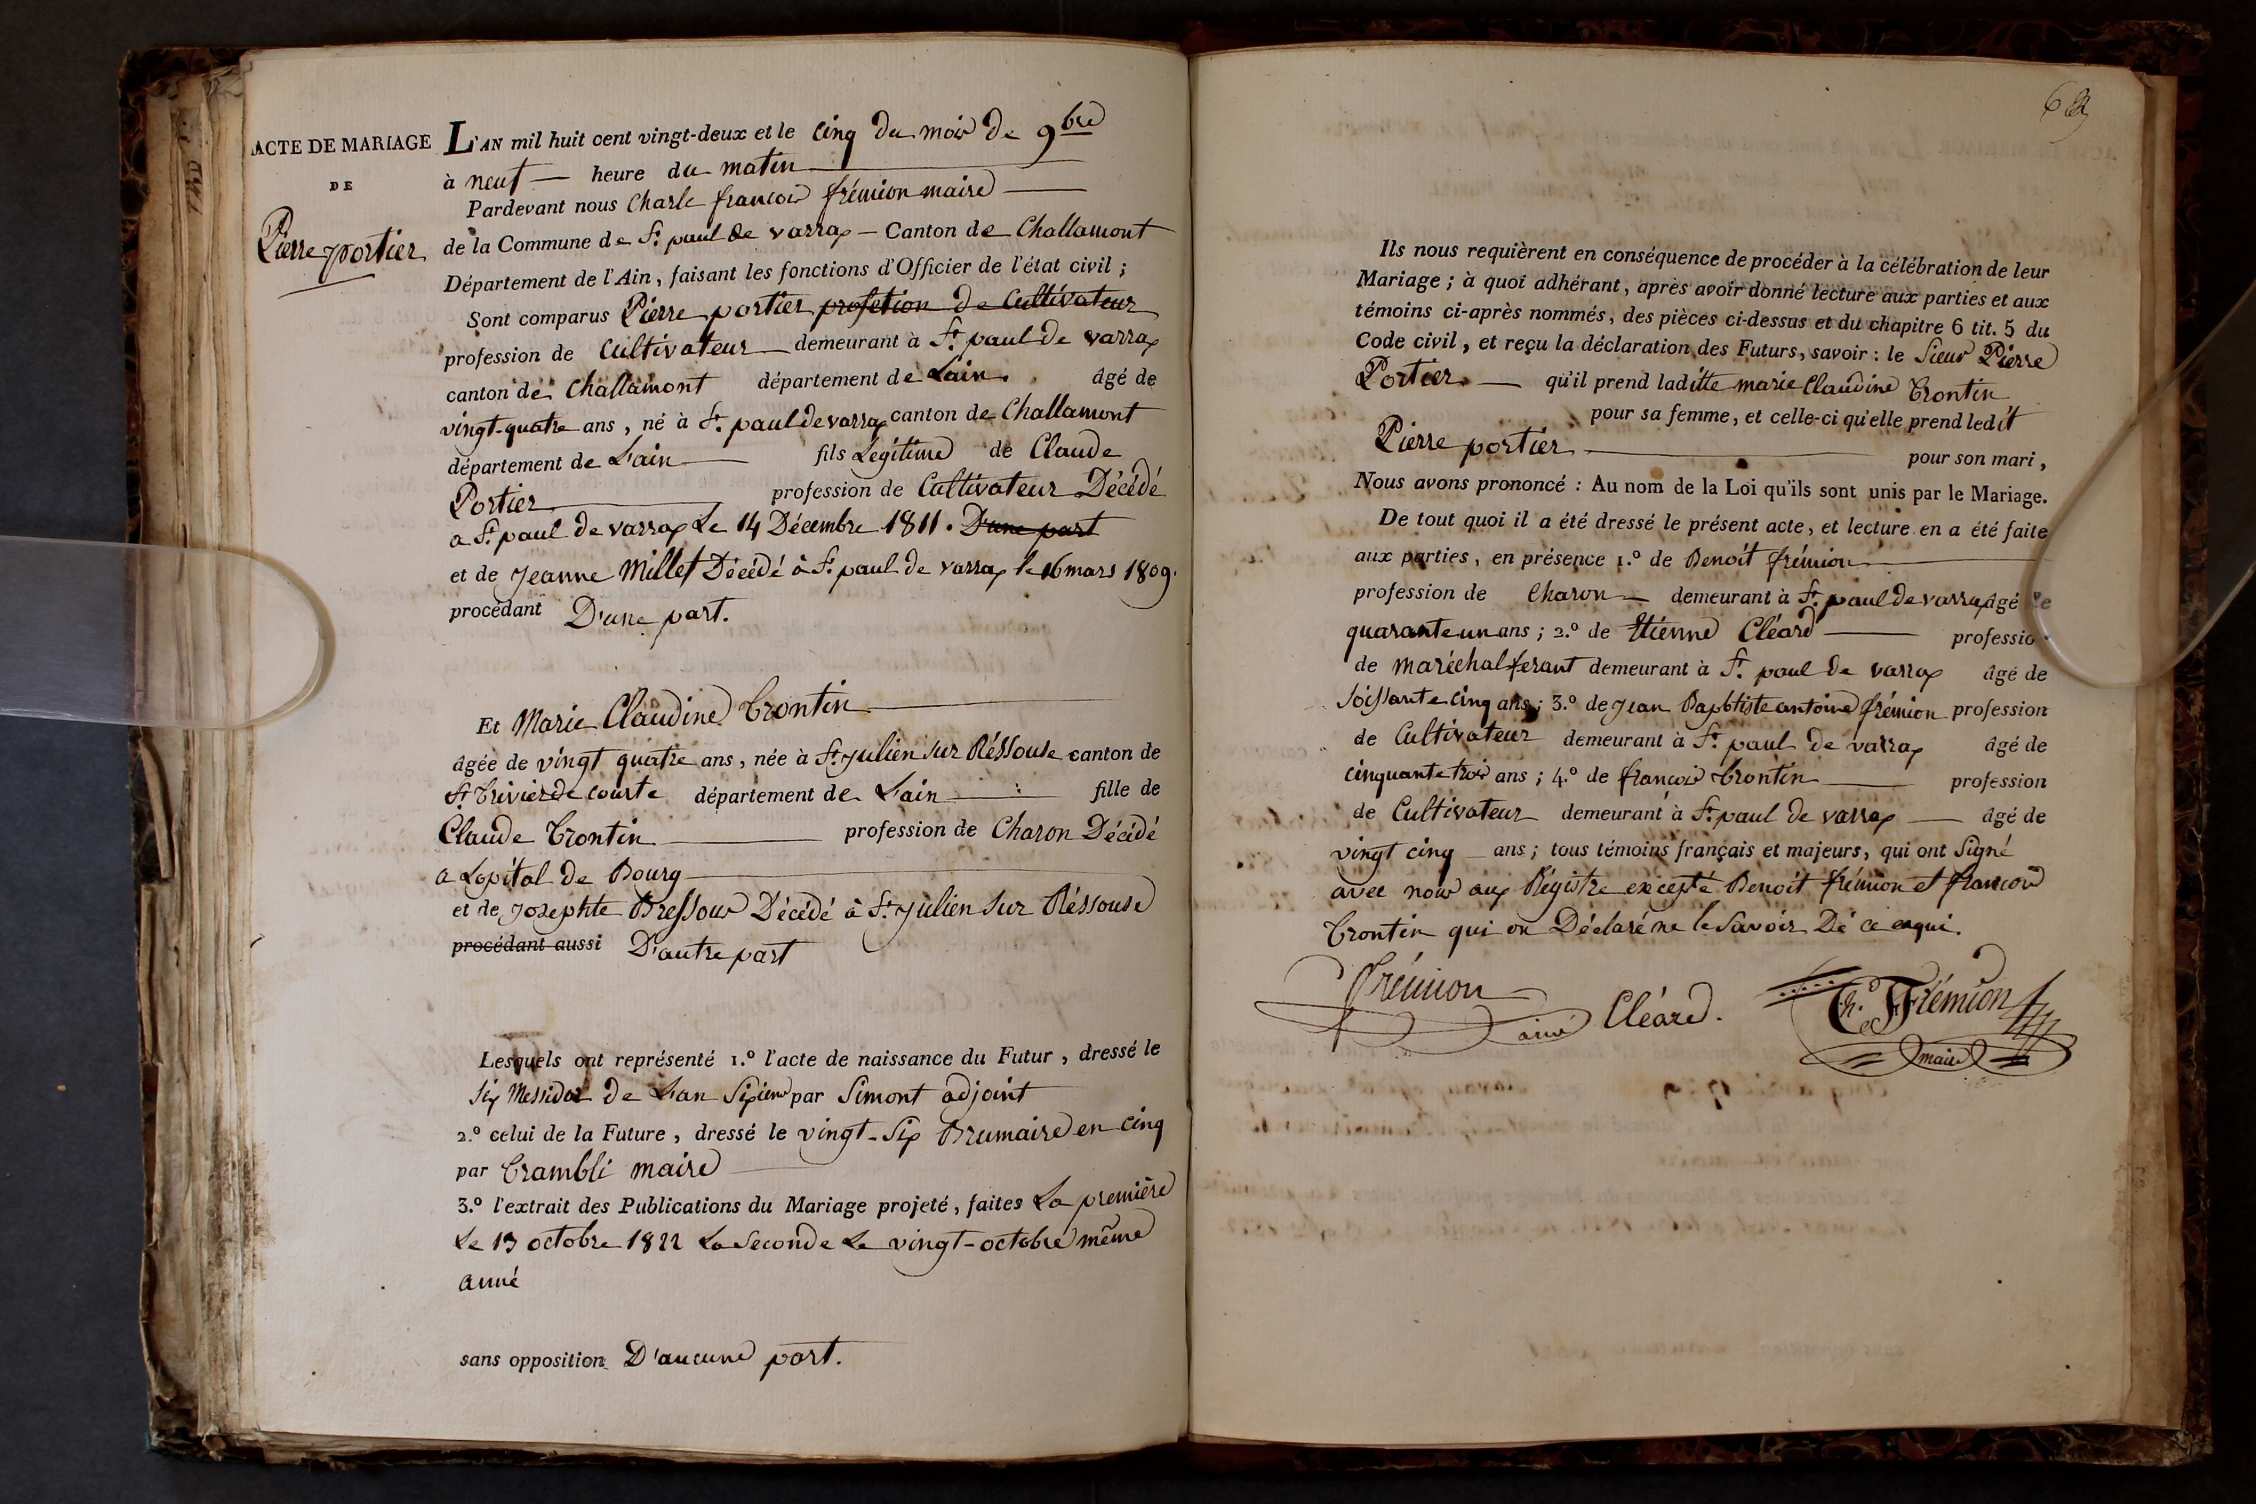 ACTE DE MARIAGE
DE
Pierre portier
L'AN mil huit cent vingt-deux et le cinq du mois de 9bre
à neuf — heure du matin
Pardevant nous Charle francois frémion maire
de la Commune de St. paul de varrax — Canton de Challamont
Département de l'Ain, faisant les fonctions d'Officier de l'état civil ;
Sont comparus Pierre portier profetion de Cultivateur
profession de Cultivateur demeurant à St. paul de varrax
canton de Challamont département de Lain âgé de
vingt-quatre ans, né à St. paul de varrax canton de Challamont
département de Lain fils Légitime de Claude
Portier profession de Cultivateur Décédé
a St. paul de varrax Le 14 Décembre 1811. D'une part
et de Jeanne Millet Décédé à St. paul de varrax le 16 mars 1809.
procédant D'une part.
Et Marie Claudine Trontin
âgée de vingt quatre ans, née à St. Julien Sur Réssouse canton de
St. Trivier de courte département de Lain fille de
Claude Trontin profession de Charon Décédé
a Lopital de Bourg
et de Josephte Bressoux Décédé à St. Julien Sur Réssouse
procédant aussi D'autre part
Lesquels ont représenté 1.° l'acte de naissance du Futur, dressé le
Six Messidor de L'an Sixieme par Simont adjoint
2.° celui de la Future, dressé le vingt-Six Brumaire en cinq
par Trambli maire
3.° l'extrait des Publications du Mariage projeté, faites La première
Le 13 octobre 1822 La Seconde Le vingt-octobre même
anné
sans opposition D'aucune part.
Ils nous requièrent en conséquence de procéder à la célébration de leur
Mariage ; à quoi adhérant, après avoir donné lecture aux parties et aux
témoins ci-après nommés, des pièces ci-dessus et du chapitre 6 tit. 5 du
Code civil, et reçu la déclaration des Futurs, savoir : le Sieur Pierre
Portier — qu'il prend laditte marie Claudine Trontin
pour sa femme, et celle-ci qu'elle prend ledit
Pierre portier
pour son mari,
Nous avons prononcé : Au nom de la Loi qu'ils sont unis par le Mariage.
De tout quoi il a été dressé le présent acte, et lecture en a été faite
aux parties, en présence 1.° de Benoit frémion
profession de Charon — demeurant à St. paul de varrax âgé de
quarante un ans ; 2.° de Etienne Cléard profession
de maréchal ferant demeurant à St. paul de varrax âgé de
soissante cinq ans ; 3.° de Jean Baptiste antoine frémion profession
de Cultivateur demeurant à St. paul de varrax âgé de
cinquante trois ans ; 4.° de francois Trontin profession
de Cultivateur demeurant à St. paul de varrax — âgé de
vingt cinq ans ; tous témoins français et majeurs, qui ont Signé
avec nous aux Régistre excepté Benoit frémion et francois
Trontin qui on Déclaré ne le Savoir De ce enqui.
frémion
ainé
Cléard.
Ch. F Frémion
maire